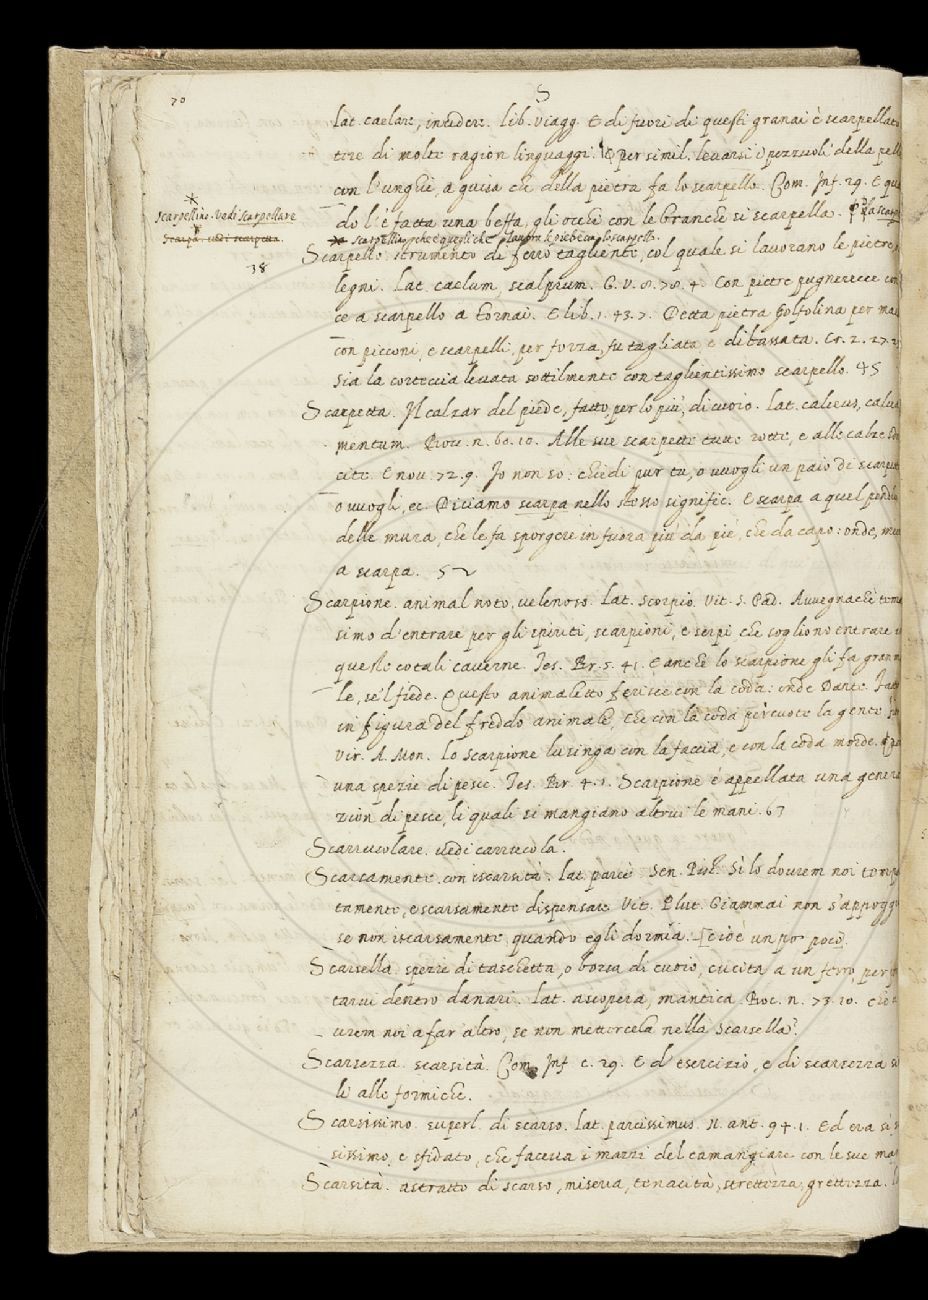 70
S
Lat. caelare, incidere. Lib. Viagg. E di fuori di questi granai è scarpellato
tire di molte ragion linguaggi. per simil. levarsi i pezzuoli della pell
con l'unghie, a guisa che della pietra fa lo scarpello. Com. Inf. 29. E qua
do l'è fatta una beffa, gli occhi con le branche si scarpella.
Scarpellino. Vedi Scarpellare
Scarpa. vedi scarpetta.
scarpellino, che è quegli che lavora le pietre con lo scarpello.
Scarpello. strumento di ferro tagliente, col quale si lavorano le pietre,
38
legni. Lat. caelum, scalprum. G. V. 8. 78. 4. Con pietre pugnerecce con
ce a scarpello a Tornai. E lib. 1. 43. 2. Detta pietra Golfolina per ma
con picconi, e scarpelli, per forza, fu tagliata e dibassata. Cr. 2. 27. 2
Sia la corteccia levata sottilmente con taglientissimo scarpello. 45
Scarpetta. Il calzar del piede, fatto, per lo più, di cuoio. Lat. calceus, calcea
mentum. Bocc. n. 60. 10. Alle sue scarpette tutte rotte, e alle calze sdr
cite. E nov. 72. 9. Io non so: chiedi pur tu, o vuogli un paio di scarpett
o vuogli, ec. Diciamo scarpa nello stesso signific. E scarpa a quel pendio
delle mura, che le fa sporgere in fuora più da piè, che da capo: onde, mura
a scarpa. 52
Scarpione. animal noto, velenoso. Lat. scorpio. Vit. S. Pad. Avvegnachè teme
simo d'entrare per gli spiriti, scarpioni, e serpi che sogliono entrare i
queste cotali caverne. Tes. Br. 5. 41. E anche lo scarpione gli fa gran m
le, se'l fiede. Questo animaletto ferisce con la coda: onde Dante.
in figura del freddo animale, che con la coda percuote la gente.
Vir. A. Mon. Lo Scarpione lusinga con la faccia, e con la coda morde.
una spezie di pesce. Tes. Br. 4. 1. Scarpione è appellata una genera
zion di pesce, li quali si mangiano altrui le mani. 67
Scarrucolare. vedi carrucola.
Scarsamente. con iscarsità. Lat. parcè. Sen. Pist. Sì lo dovrem noi temp
tamente, e scarsamente dispensare. Vit. Plut. Giammai non s'appoggi
se non iscarsamente, quando egli dormia. [cioè un po' poco
Scarsella. spezie di taschetta, o borsa di cuoio, cucita a un ferro, per
tarvi dentro danari. Lat. ascopera, mantica. Boc. n. 73. 10.
vrem noi a far altro, se non mettercela nella Scarsella?
Scarsezza. scarsità. Com. Inf. c. 29. E d'esercizio, e di scarsezza si
li alle formiche.
Scarsissimo. superl. di scarso. Lat. parcissimus. N. ant. 94. 1. Ed era sì s
sissimo, e sfidato, che faceva i mazzi del camangiare con le sue man
Scarsità. astratto di scarso, miseria, tenacità, strettezza, grettezza.